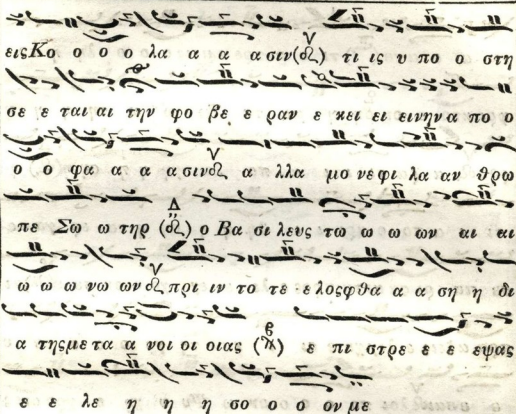 εις Κο ο ο ο λα α α α σιν (δ) τι ις υ πο ο στη
σε ε ται αι την φο βε ε ραν ε κει ει εινην α πο ο
ο ο φα α α α σιν δ α λλα μο νε φι λα αν θρω
πε Σω ω τηρ (δ) ο Βα σι λευς τω ω ω ω ων αι αι
ω ω ω νω ων δ πρι ιν το τε ε λος φθα α α ση η δι
α της με τα α νοι οι οιας ε πι στρε ε ε εψας
ε ε λε η η η σο ο ο ον με